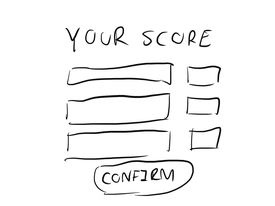 YOUR SCORE
CONFIRM